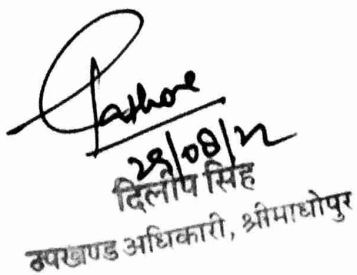 Rathore
29/08/22
दिलीप सिंह
उपखण्ड अधिकारी, श्रीमाधोपुर